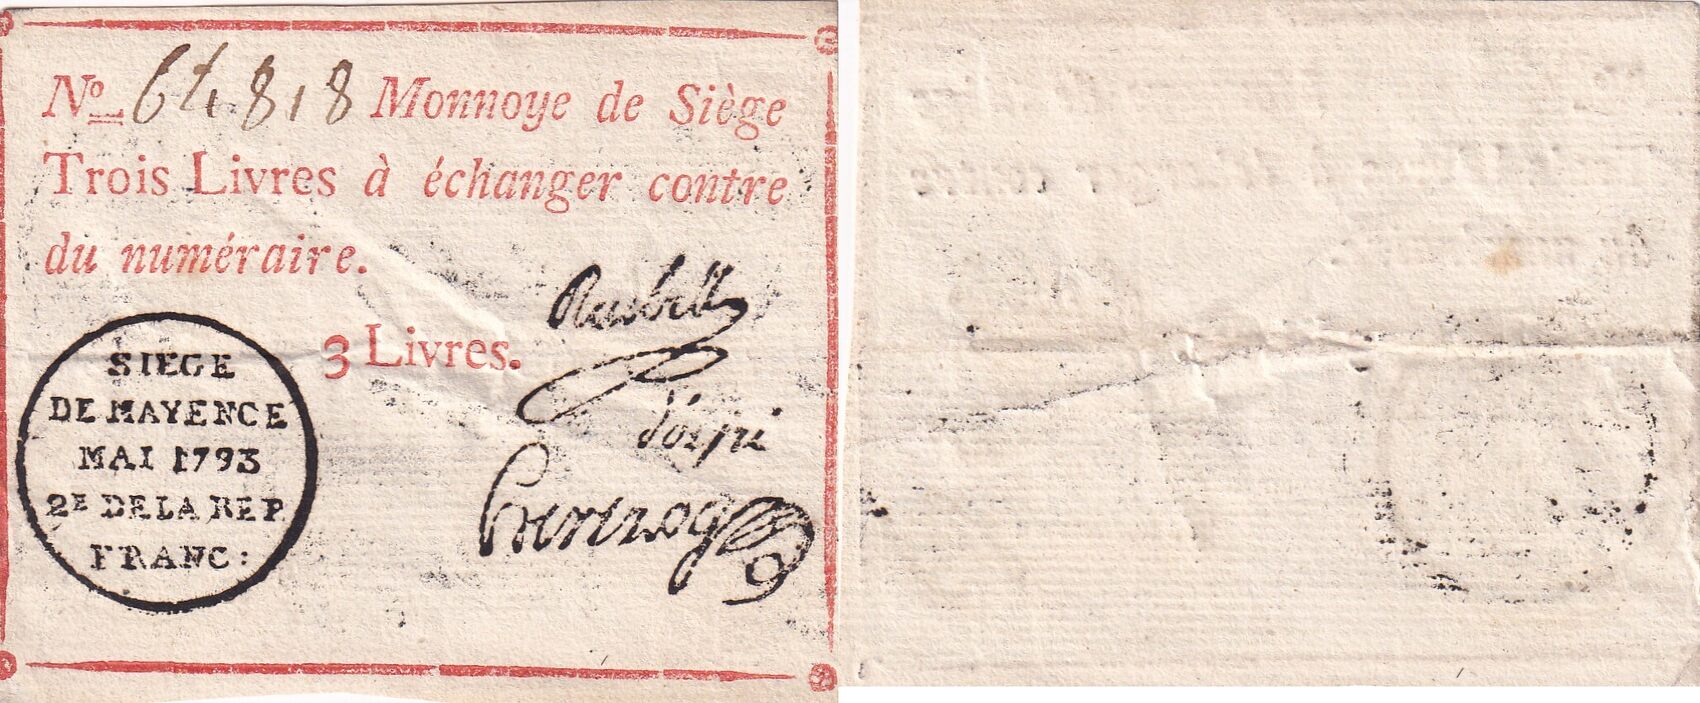 No 64818 Monnoye de Siège
Trois Livres à échanger contre
du numéraire.
3 Livres.
SIEGE
DE MAYENCE
MAI 1793
2E DE LA REP.
FRANC:
Reubell